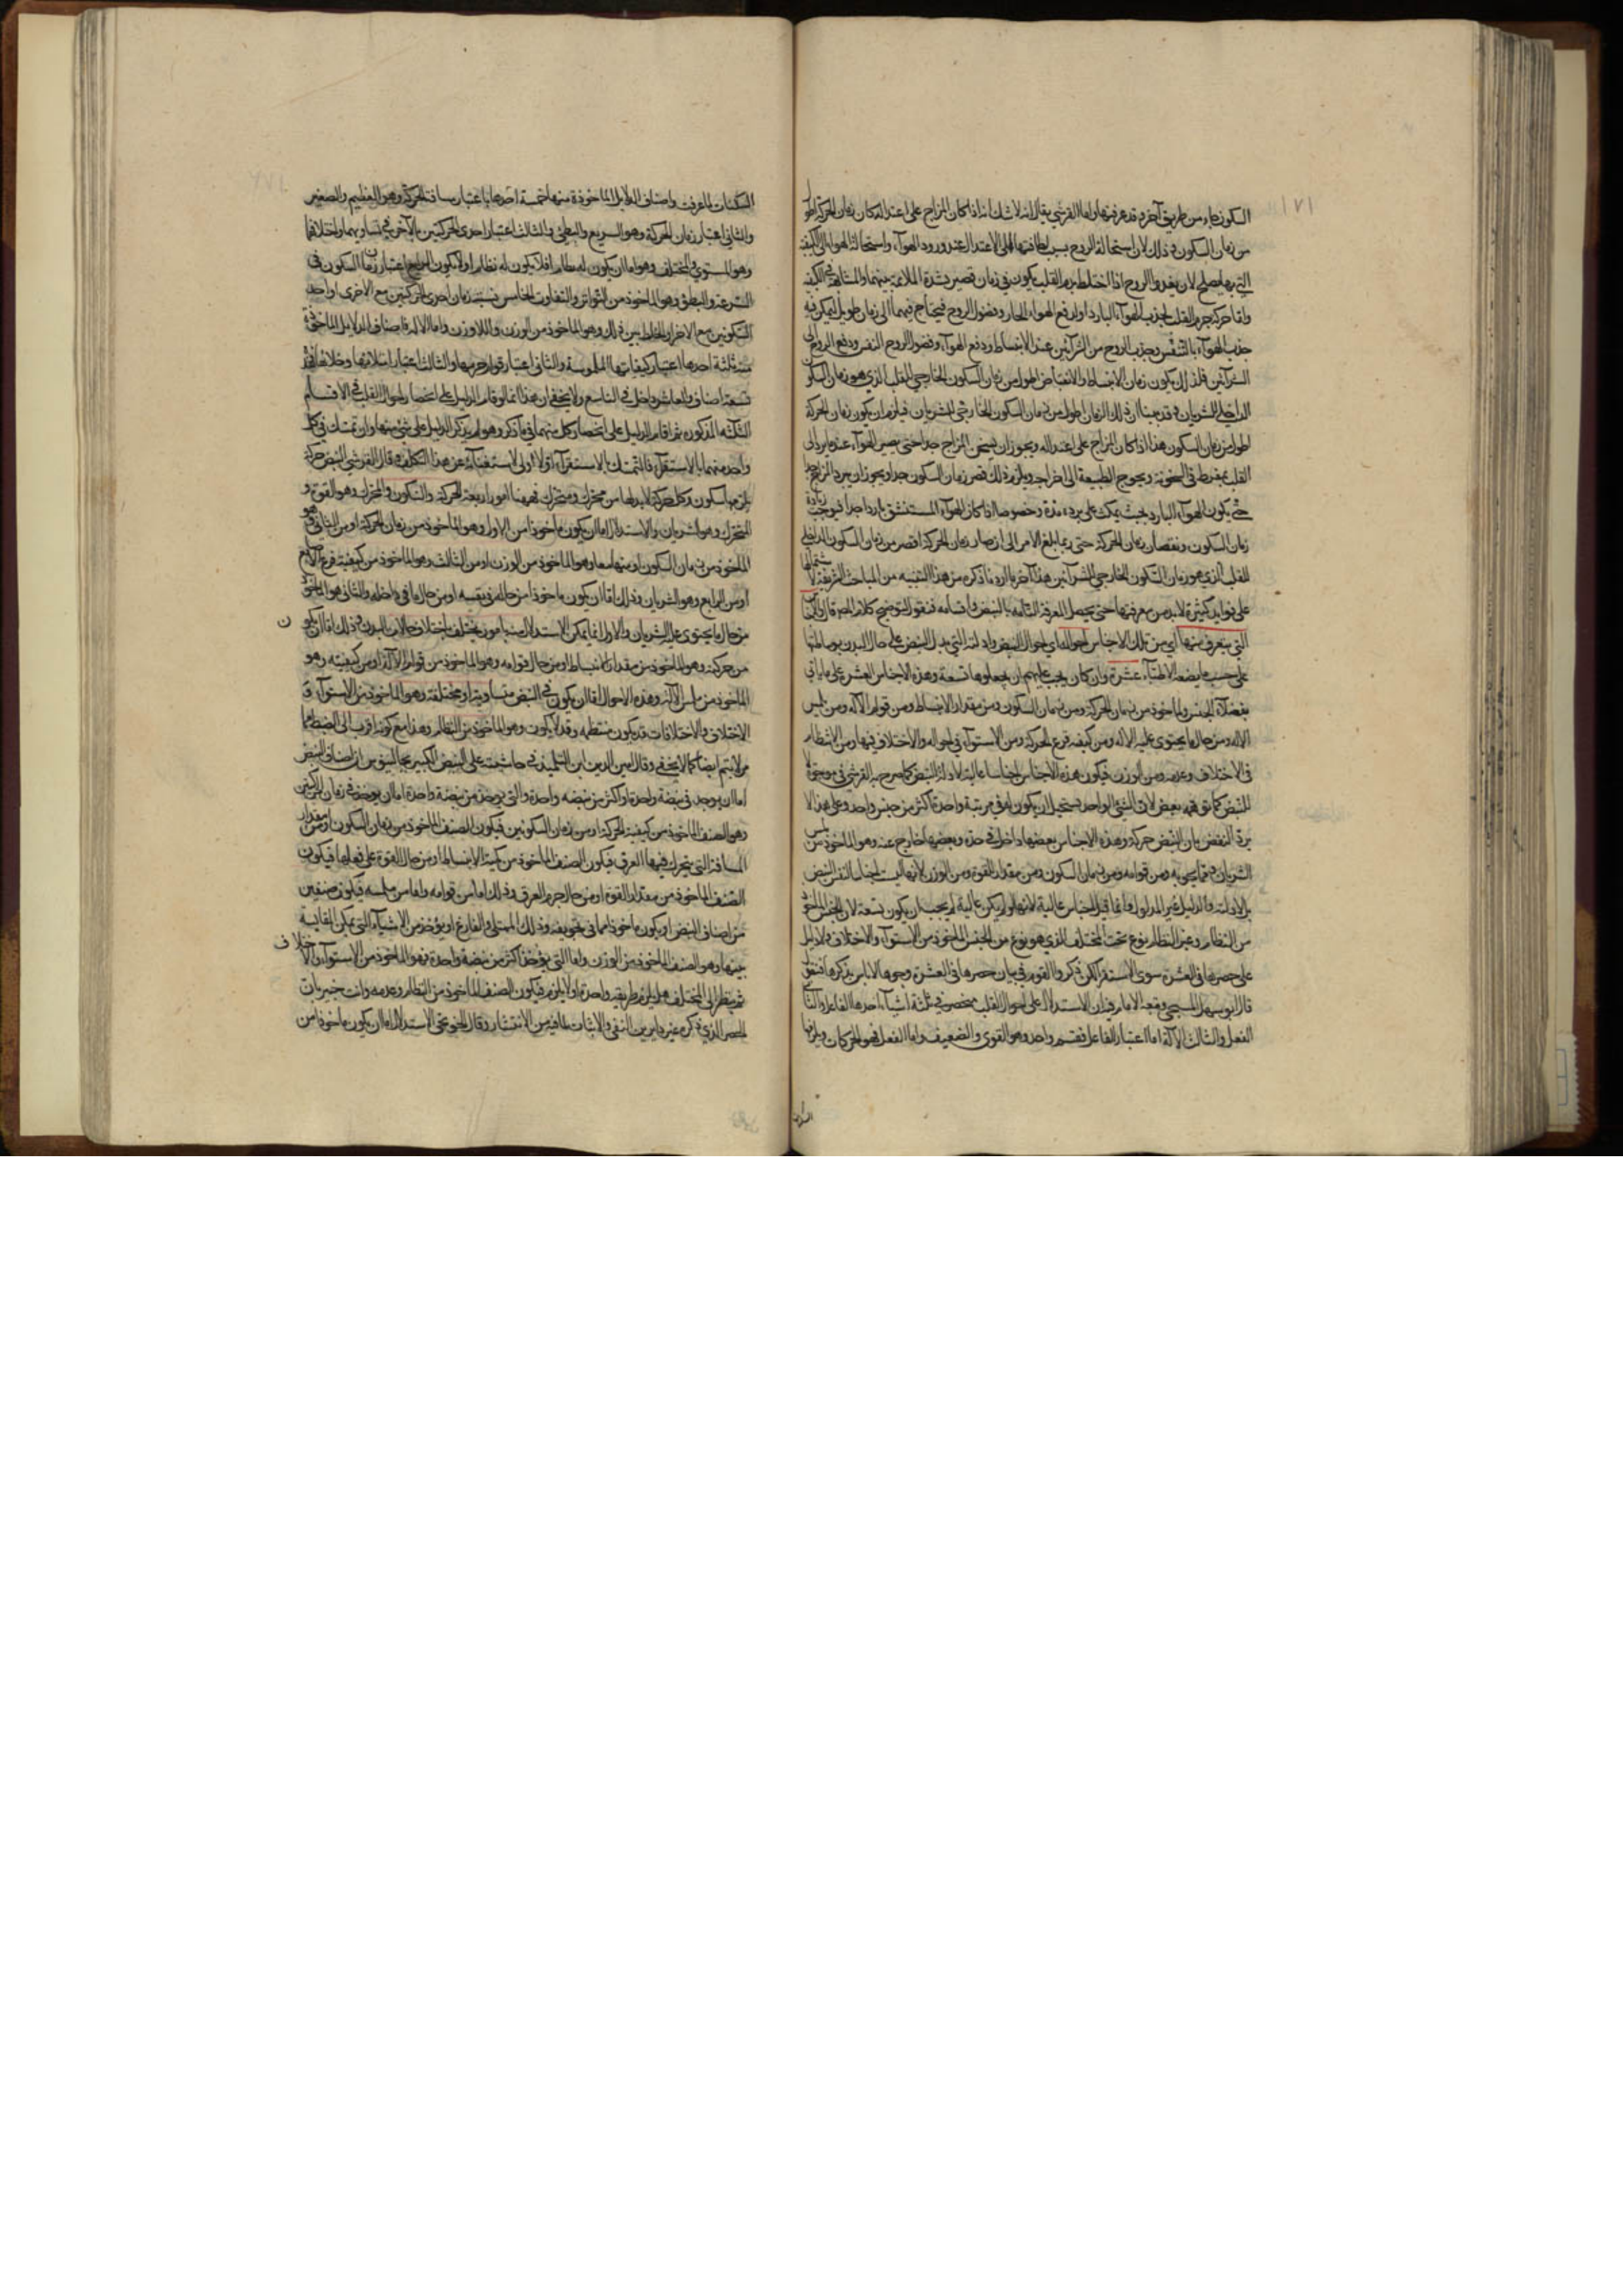 السكون جاء من طريق آخر قد عرفتها واما القرشي يقال انه لا شك انه اذا كان المزاج على اعتداله كان زمان الحركة اطول
من زمان السكون وذلك لان استحالة الروح بسبب لطافتها الى الاعتدال عند ورود الهواء واستحالة الهواء الى الكيفية
التي بها يصلح لان يغدو الروح اذا اختلط بدم القلب يكون في زمان قصير لشدة الملاءمة بينهما والمشابهة في الكيفية
واما حركة جرم القلب لجذب الهواء البارد او لدفع الهواء الحار وفضول الروح فيحتاج فيهما الى زمان طويل ليمكن فيه
جذب الهواء بالتنفس وجذب الروح من الشرائين عند الانبساط ودفع الهواء وفضول الروح النفس ودفع الروح الى
الشرائين فلذلك يكون زمان الانبساط والانقباض اطول من زمان السكون الخارجي للقلب الذي هو زمان السكون
الداخلي للشريان وقد بينا ان ذلك الزمان اطول من زمان السكون الخارجي للشريان فيلزم ان يكون زمان الحركة
اطول من زمان السكون هذا اذا كان المزاج على اعتداله ويجوز ان يسخن المزاج جدا حتى يصير الهواء عندما يرد الى
القلب يفرط في السخونة ويحوج الطبيعة الى اخراجه ويلزم ذلك قصر زمان السكون جدا ويجوز ان يبرد المزاج جدا
حتى يكون الهواء البارد بحيث يمكث على برده مدة وخصوصا اذا كان الهواء المستنشق باردا جدا فيوجب زيادة
زمان السكون ونقصان زمان الحركة حتى ربما بلغ الامر الى ان صار زمان الحركة اقصر من زمان السكون الداخلي
للقلب الذي هو زمان السكون الخارجي للشرائين هذا آخر ما اردنا ذكره من هذا التنبيه من المباحث الشريفة لاشتمالها
على فوايد كثيرة لابد من معرفتها حتى يحصل المعرفة التامة بالنبض واقسامه فنقول لتوضيح كلام المص قال
التي يتعرف منها اي من تلك الاجناس احوال اي احوال النبض وادلته التي يدل النبض على حال البدن بوساطتها
على حسب ما يضعه الاطباء عشرة وان كان يجب عليهم ان يجعلوها تسعة وهذه الاجناس العشر على ما ياتي
الاله ومن حال ما يحتوي عليه الاله ومن كيفية قرع الحركة ومن الاستواء في احواله والاختلاف فيها ومن الانتظام
في الاختلاف وعدمه ومن الوزن فيكون هذه الاجناس اجناسا عالية لادلة النبض كما صرح به القرشي في موجزه لا
للنبض كما توهمه بعض لان الشيء الواحد يستحيل ان يكون له في مرتبة واحدة اكثر من جنس واحد وعلى هذا لا
يرد النقض بان النبض حركة وهذه الاجناس بعضها داخل في حده وبعضها خارج عنه وهو الماخوذ من
الشريان وما يحويه ومن قوامه ومن زمان السكون ومن مقدار القوة ومن الوزن لانها ليست اجناسا لنفس النبض
بل لادلته والدليل غير المدلول وانما قيل اجناس عالية لانها لو لم يكن عالية لم يجب ان يكون تسعة لان الجنس الماخوذ
من النظام وغير النظام نوع تحت المختلف الذي هو نوع من الجنس الماخوذ من الاستواء والاختلاف ولا دليل
على حصرها في العشرة سوى الاستقراء لكن ذكروا القوم في بيان حصرها في العشرة وجوها لا باس بذكرها فنقول
قال ابو سهل المسيحي الاستدلال على احوال القلب منحصر في ثلثة اشياء احدها الفاعل والثاني
الفعل والثالث الآلة اما اعتبار الفاعل فقسم واحد وهو القوي والضعيف واما الفعل فهو الحركات ويلزمها
السكنات لما عرفت واصناف الدلايل الماخوذة منها خمسة احدها باعتبار مسافة الحركة وهو العظيم والصغير
والثاني اعتبار زمان الحركة وهو السريع والبطي والثالث اعتبار احدى الحركتين بالاخرى في تساويهما واختلافهما
وهو المستوي والمختلف وهو اما ان يكون له نظام او لا يكون له نظام والرابع اعتبار زمان السكون في
السرعة والبطؤ وهو الماخوذ من التواتر والتفاوت الخامس نسبة زمان احدى الحركتين مع الاخرى او احد
السكونين مع الاخر او الخلط بين ذلك وهو الماخوذ من الوزن واللاوزن واما الاله فاصناف الدلايل الماخوذة
منه ثلثة احدها اعتبار كيفياتها الملموسة والثاني اعتبار قوام جرمها والثالث اعتبار امتلائها وخلائها فهذه
تسعة اصناف والعاشر داخل في التاسع ولا يخفى ان هذا انما لو قام الدليل على انحصار احوال القلب في الاقسام
الثلثة المذكورة ثم اقام الدليل على انحصار كل منهما في ما ذكر وهو لم يذكر الدليل على شيء منها وان تمسك في كل
واحد منهما بالاستقراء فالتمسك بالاستقراء اولا اولى لاستغنائه عن هذا التكلف وقال القرشي النبض حركة
يلزمها سكون وكل حركة لابد لها من محرك ومتحرك فههنا امور اربعة الحركة والسكون والمحرك وهو القوة و
المتحرك وهو الشريان والاستدلال اما ان يكون ماخوذا من الاول وهو الماخوذ من زمان الحركة او من الثاني وهو
الماخوذ من زمان السكون او منهما معا وهو الماخوذ من الوزن او من الثالث وهو الماخوذ من كيفية قرع
او من الرابع وهو الشريان وذلك اما ان يكون ماخوذا من حاله في نفسه او من حال ما في داخله والثاني هو الماخوذ
من حال ما يحتوي عليه الشريان والاول انما يمكن الاستدلال منه بامور يختلف باختلاف حالات البدن وذلك اما ان يكون
من حركته وهو الماخوذ من مقدار الانبساط او من حال قوامه وهو الماخوذ من قوام الآلة او من كيفيته وهو
الماخوذ من ملمس الآلة وهذه الاحوال اما ان يكون في النبض متساوية او مختلفة وهو الماخوذ من الاستواء و
الاختلاف والاختلافات قد يكون منتظمة وقد لا يكون وهو الماخوذ من النظام وهذا مع كونه اقرب الى الضبط مما
مر لا يتم ايضا كما لا يخفى وقال امين الدين ابن التلميذ في حاشيته على النبض الكبير لجالينوس ان اصناف النبض
اما ان يوجد في نبضة واحدة او اكثر من نبضه واحدة والتي يوجد من نبضة واحدة اما ان يوخذ في زمان الحركتين
وهو الصنف الماخوذ من كيفية الحركة او من زمان السكونين فيكون الصنف الماخوذ من زمان السكون او من مقدار
المسافة التي يتحرك فيها العرق فيكون الصنف الماخوذ من كمية الانبساط او من حال القوة على فعلها فيكون
الصنف الماخوذ من مقدار القوة او من حال جرم العرق وذلك اما من قوامه واما من ملمسه فيكون صنفين
من اصناف النبض او يكون ماخوذا مما في تجويفه وذلك الممتلي والفارغ او يؤخذ من الاشياء التي يمكن المقايسة
بينها وهو الصنف الماخوذ من الوزن واما التي يؤخذ اكثر من نبضة واحدة فهو الماخوذ من الاستواء والاختلاف
ثم ينظر الى المختلف هل يلزم طريقة واحدة او لا يلزم فيكون الصنف الماخوذ من النظام وعدمه وانت خبير بان
الحصر الذي ذكره غير داير بين النفي والاثبات لما فيه من الانتشار وقال الخونجي الاستدلال اما ان يكون ماخوذا من